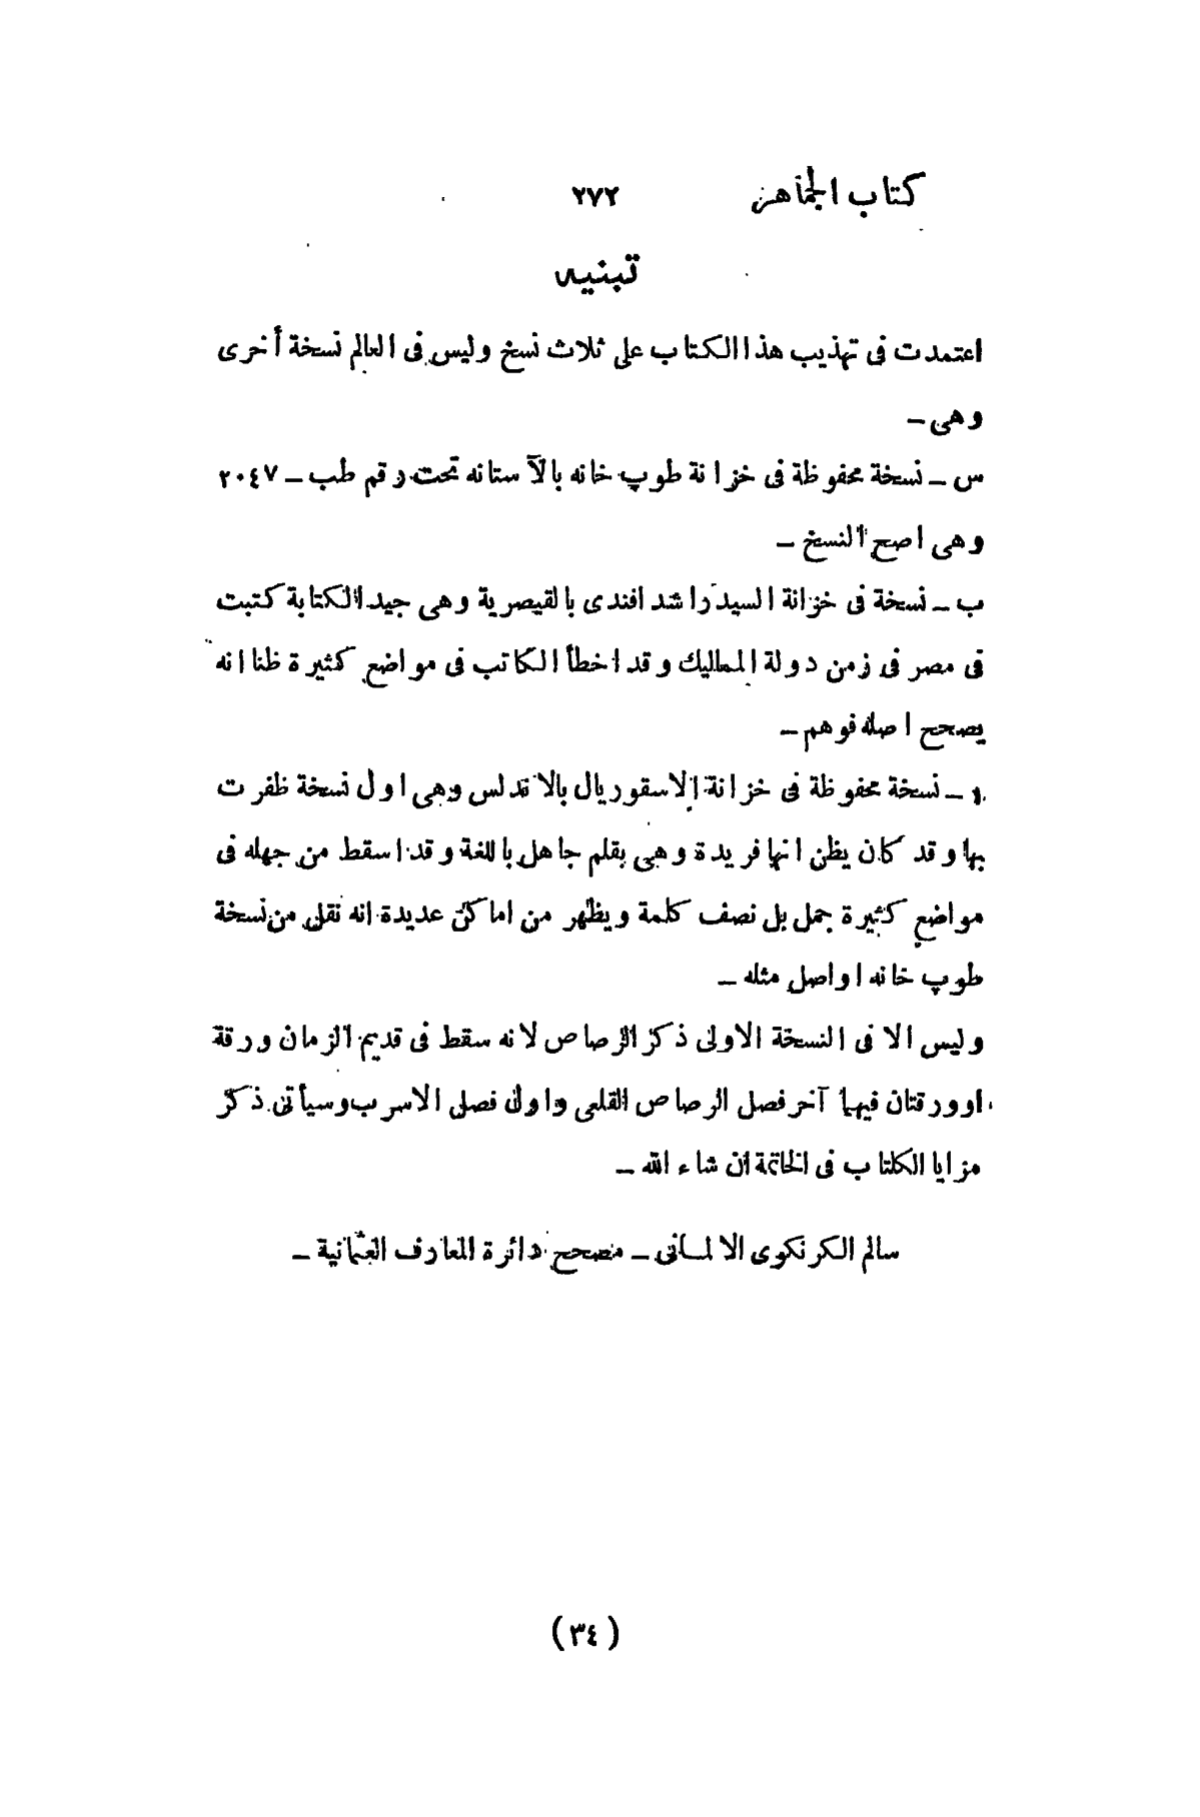 كتاب الجماهر ٢٧٢
تبنيه
اعتمدت فى تهذيب هذا الكتاب على ثلاث نسخ وليس فى العالم نسخة أخرى
وهى ـ
س ـ نسخة محفوظة فى خزانة طوپ خانه بالآستانه تحت رقم طب ـ ٢٠٤٧
وهى اصح النسخ ـ
ب ـ نسخة فى خزانة السيد راشد افندى بالقيصرية وهى جيد الكتابة كتبت
فى مصر فى زمن دولة المماليك وقد اخطأ الكاتب فى مواضع كثيرة ظنا انه
يصحح اصله فوهم ـ
ا ـ نسخة محفوظة فى خزانة الاسقوريال بالاندلس وهى اول نسخة ظفرت
بها وقد كان يظن انها فريدة وهى بقلم جاهل باللغة وقد اسقط من جهله فى
مواضع كثيرة جمل بل نصف كلمة ويظهر من اماكن عديدة انه نقل من نسخة
طوپ خانه او اصل مثله ـ
وليس الا فى النسخة الاولى ذكر الرصاص لانه سقط فى قديم الزمان ورقة
او ورقتان فيهما آخر فصل الرصاص القلعى واول فصل الاسرب وسيأتى ذكر
مزايا الكتاب فى الخاتمة ان شاء الله ـ
سالم الكرنكوى الالمانى ـ مصحح دائرة المعارف العثمانية ـ
(٣٤)